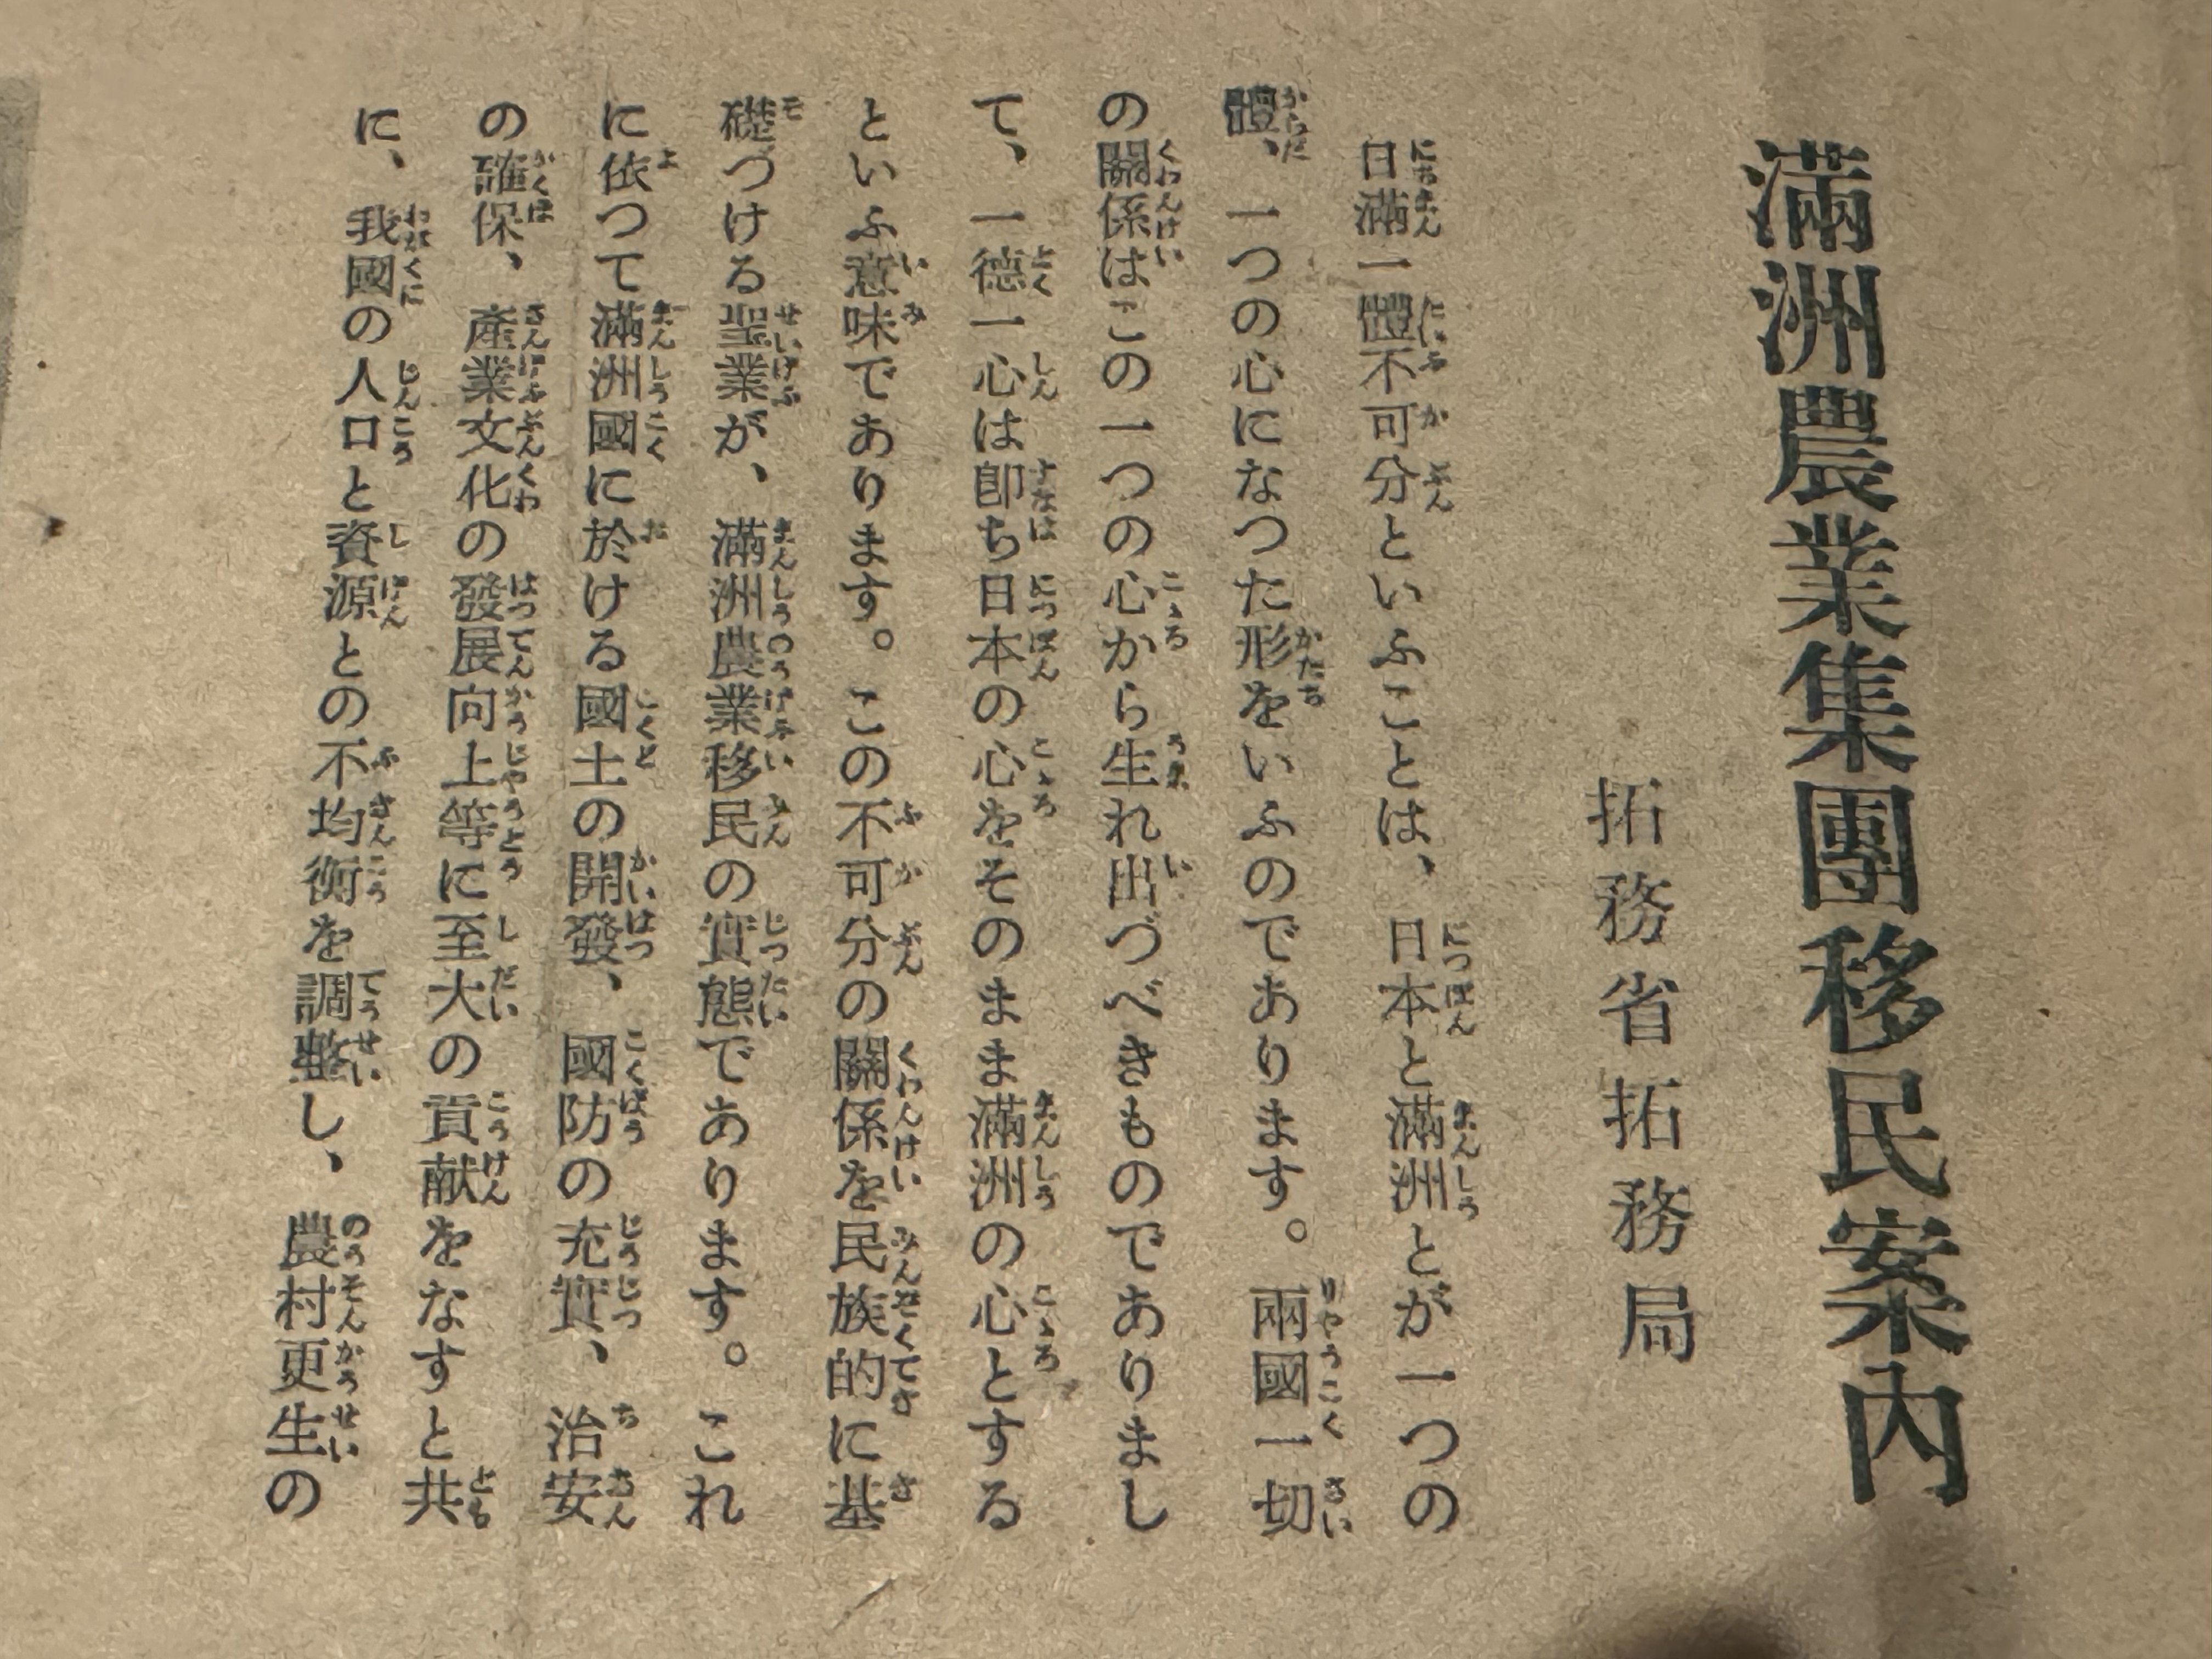 滿洲農業集團移民案內
拓務省拓務局
日滿一體不可分といふことは、日本と滿洲とが一つの
體、一つの心になつた形をいふのであります。兩國一切
の關係はこの一つの心から生れ出づべきものでありまし
て、一德一心は卽ち日本の心をそのまま滿洲の心とする
といふ意味であります。この不可分の關係を民族的に基
礎づける聖業が、滿洲農業移民の實態であります。これ
に依つて滿洲國に於ける國土の開發、國防の充實、治安
の確保、產業文化の發展向上等に至大の貢献をなすと共
に、我國の人口と資源との不均衡を調整し、農村更生の